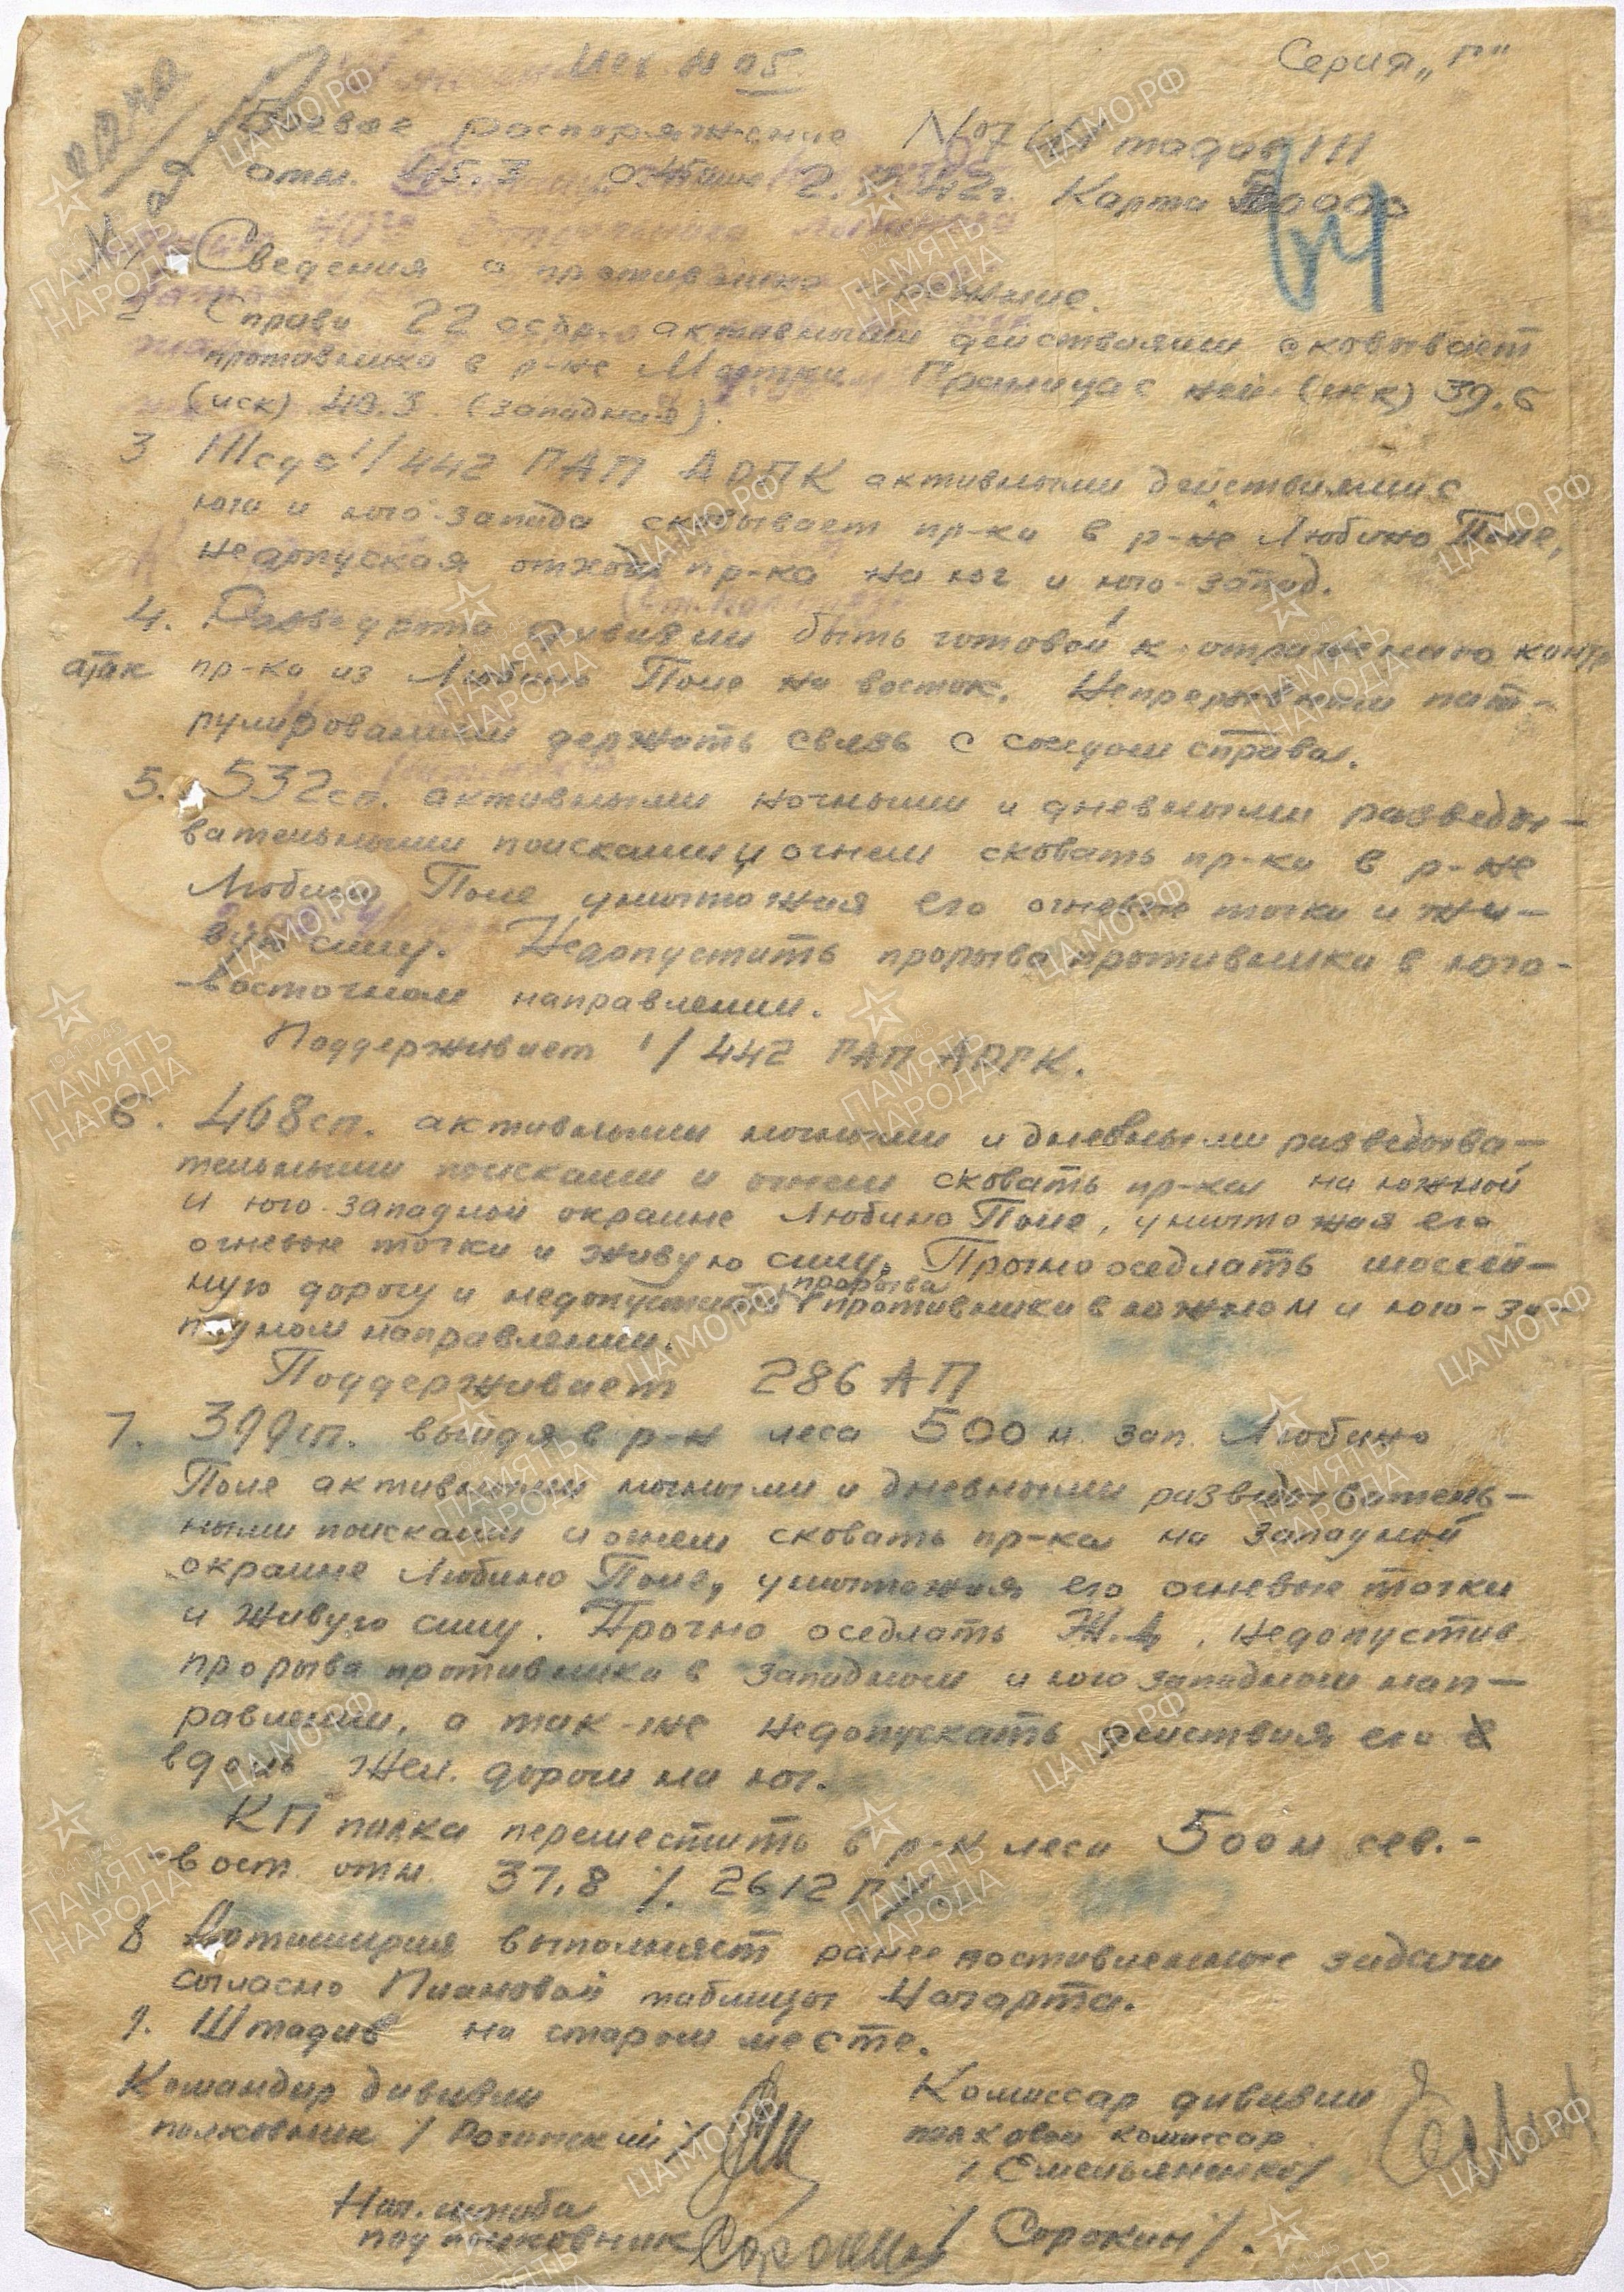 Исх N 05
Серия „Г"
Боевое распоряжение №07 штадив 111
отм. 45.3 2. 42г. Карта 50000
1. Сведения о противнике прежние.
2 Справа 22 осбр. активными действиями сковывает
противника в р-не Мостки. Граница с ней (иск) 39.6
(иск) 40.3. (западная).
3 111 сд с 1/442 ПАП АРГК активными действиями с
юга и юго-запада сковывает пр-ка в р-не Любино Поле,
недопуская отхода пр-ка на юг и юго-запад.
4. Разведрота дивизии быть готовой к отражению контр
атак пр-ка из Любино Поле на восток. Непрерывным пат-
рулированием держать связь с соседом справа.
5. 532сп. активными ночными и дневными разведы-
вательными поисками и огнем сковать пр-ка в р-не
Любино Поле уничтожая его огневые точки и жи-
вую силу. Недопустить прорыва противника в юго-
-восточном направлении.
Поддерживает 1/442 ПАП АРГК.
6. 468сп. активными ночными и дневными разведыва-
тельными поисками и огнем сковать пр-ка на южной
и юго-западной окраине Любино Поле, уничтожая его
огневые точки и живую силу. Прочно оседлать шоссей-
ную дорогу и недопустить прорыва противника в южном и юго-за-
падном направлении.
Поддерживает 286 АП
7. 399сп. выйдя в р-н леса 500 м. зап. Любино
Поле активными ночными и дневными разведыватель-
ными поисками и огнем сковать пр-ка на западной
окраине Любино Поле, уничтожая его огневые точки
и живую силу. Прочно оседлать Ж.Д., недопустив
прорыва противника в западном и юго западном нап-
равлении, а так-же недопускать действия его
вдоль жел. дороги на юг.
КП полка переместить в р-н леса 500 м сев.-
-вост. отм. 37,8 /. 2612
8 Артиллерия выполняет ранее поставленные задачи
согласно Плановой таблицы Начарта.
9. Штадив на старом месте.
Командир дивизии
полковник / Рогинский /
Комиссар дивизии
полковой комиссар
/ Емельяненко /
Нач. штаба
подполковник Сорокин / Сорокин /.